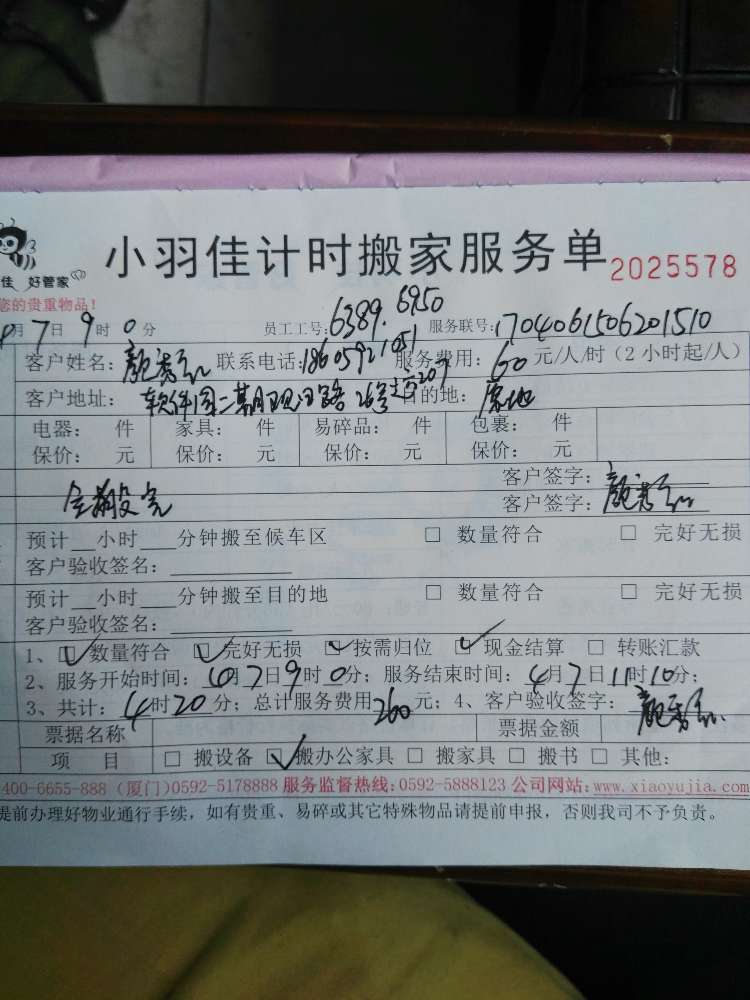 小羽佳计时搬家服务单 2025578
佳 好管家
您的贵重物品！
月7日9时0分 员工工号：6389.6950 服务联号：1704061506201510
客户姓名： 联系电话：18605921051 服务费用：60元/人/时（2小时起/人）
客户地址：软件园二期观日路26号 207 目的地：原地
电器： 件 家具： 件 易碎品： 件 包裹： 件
保价： 元 保价： 元 保价： 元 保价： 元
客户签字：
全部搬完 客户签字：
预计__小时___分钟搬至候车区 □ 数量符合 □ 完好无损
客户验收签名：
预计__小时___分钟搬至目的地 □ 数量符合 □ 完好无损
客户验收签名：
1、☑数量符合 ☑完好无损 ☑按需归位 ☑现金结算 □ 转账汇款
2、服务开始时间：4月7日9时0分；服务结束时间：4月7日11时10分；
3、共计：4时20分；总计服务费用260元；4、客户验收签字：
票据名称 票据金额
项 目 □ 搬设备 ☑搬办公家具 □ 搬家具 □ 搬书 □ 其他：
400-6655-888（厦门）0592-5178888 服务监督热线：0592-5888123 公司网站：www.xiaoyujia.com
提前办理好物业通行手续，如有贵重、易碎或其它特殊物品请提前申报，否则我司不予负责。